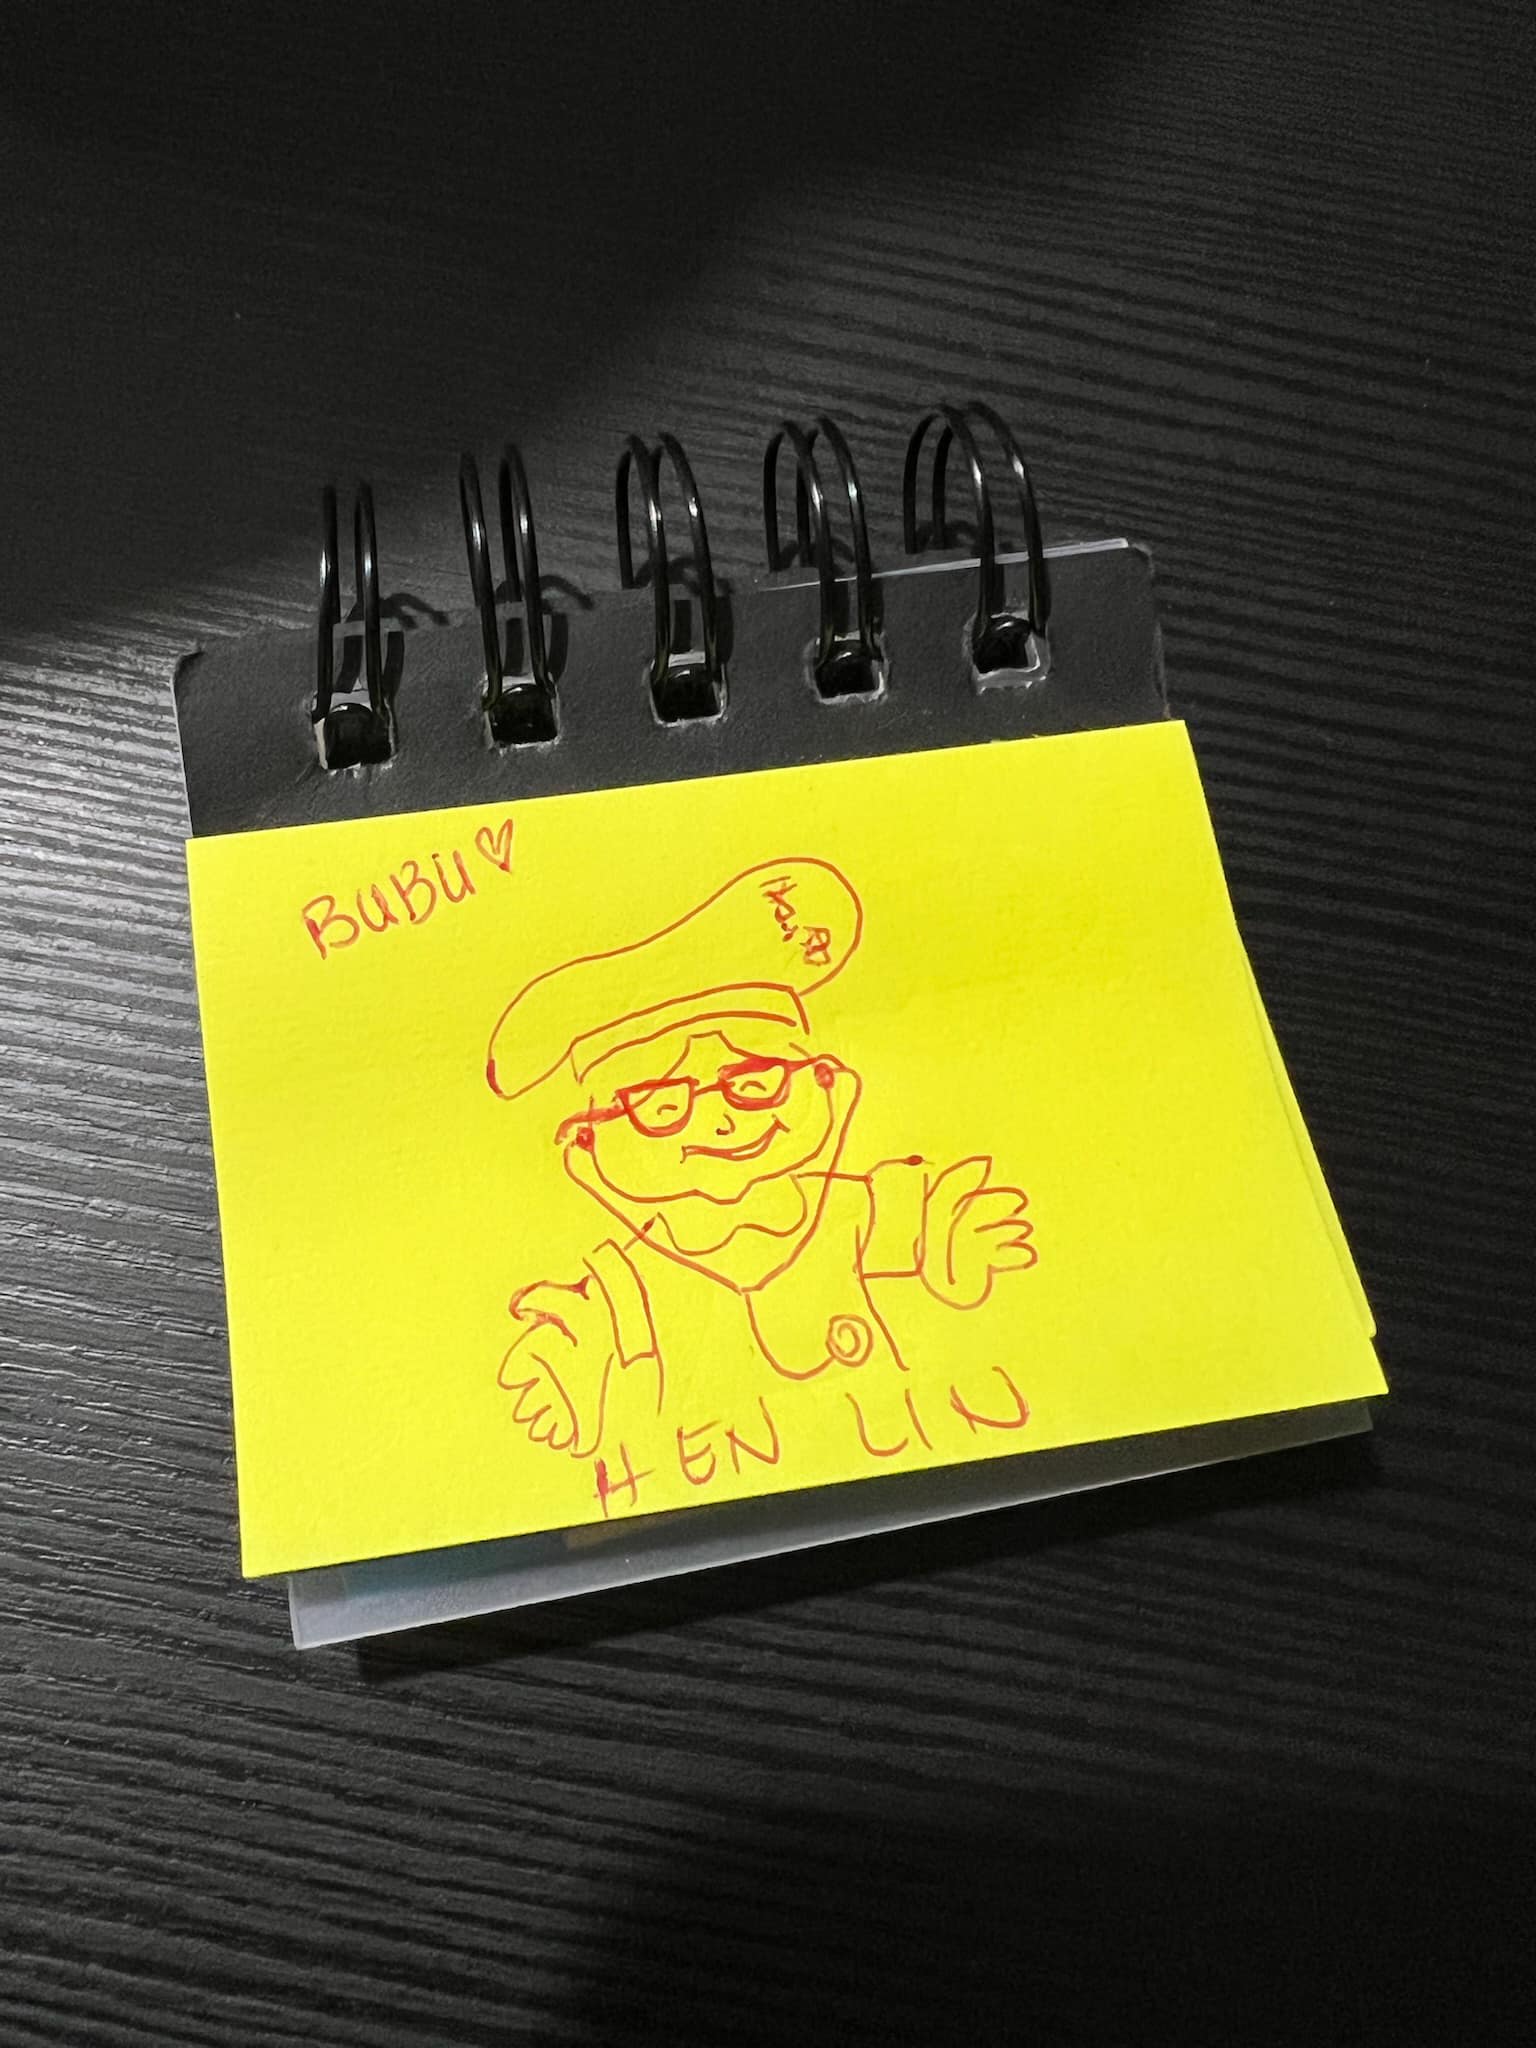 BUBU♡
HEN LIN